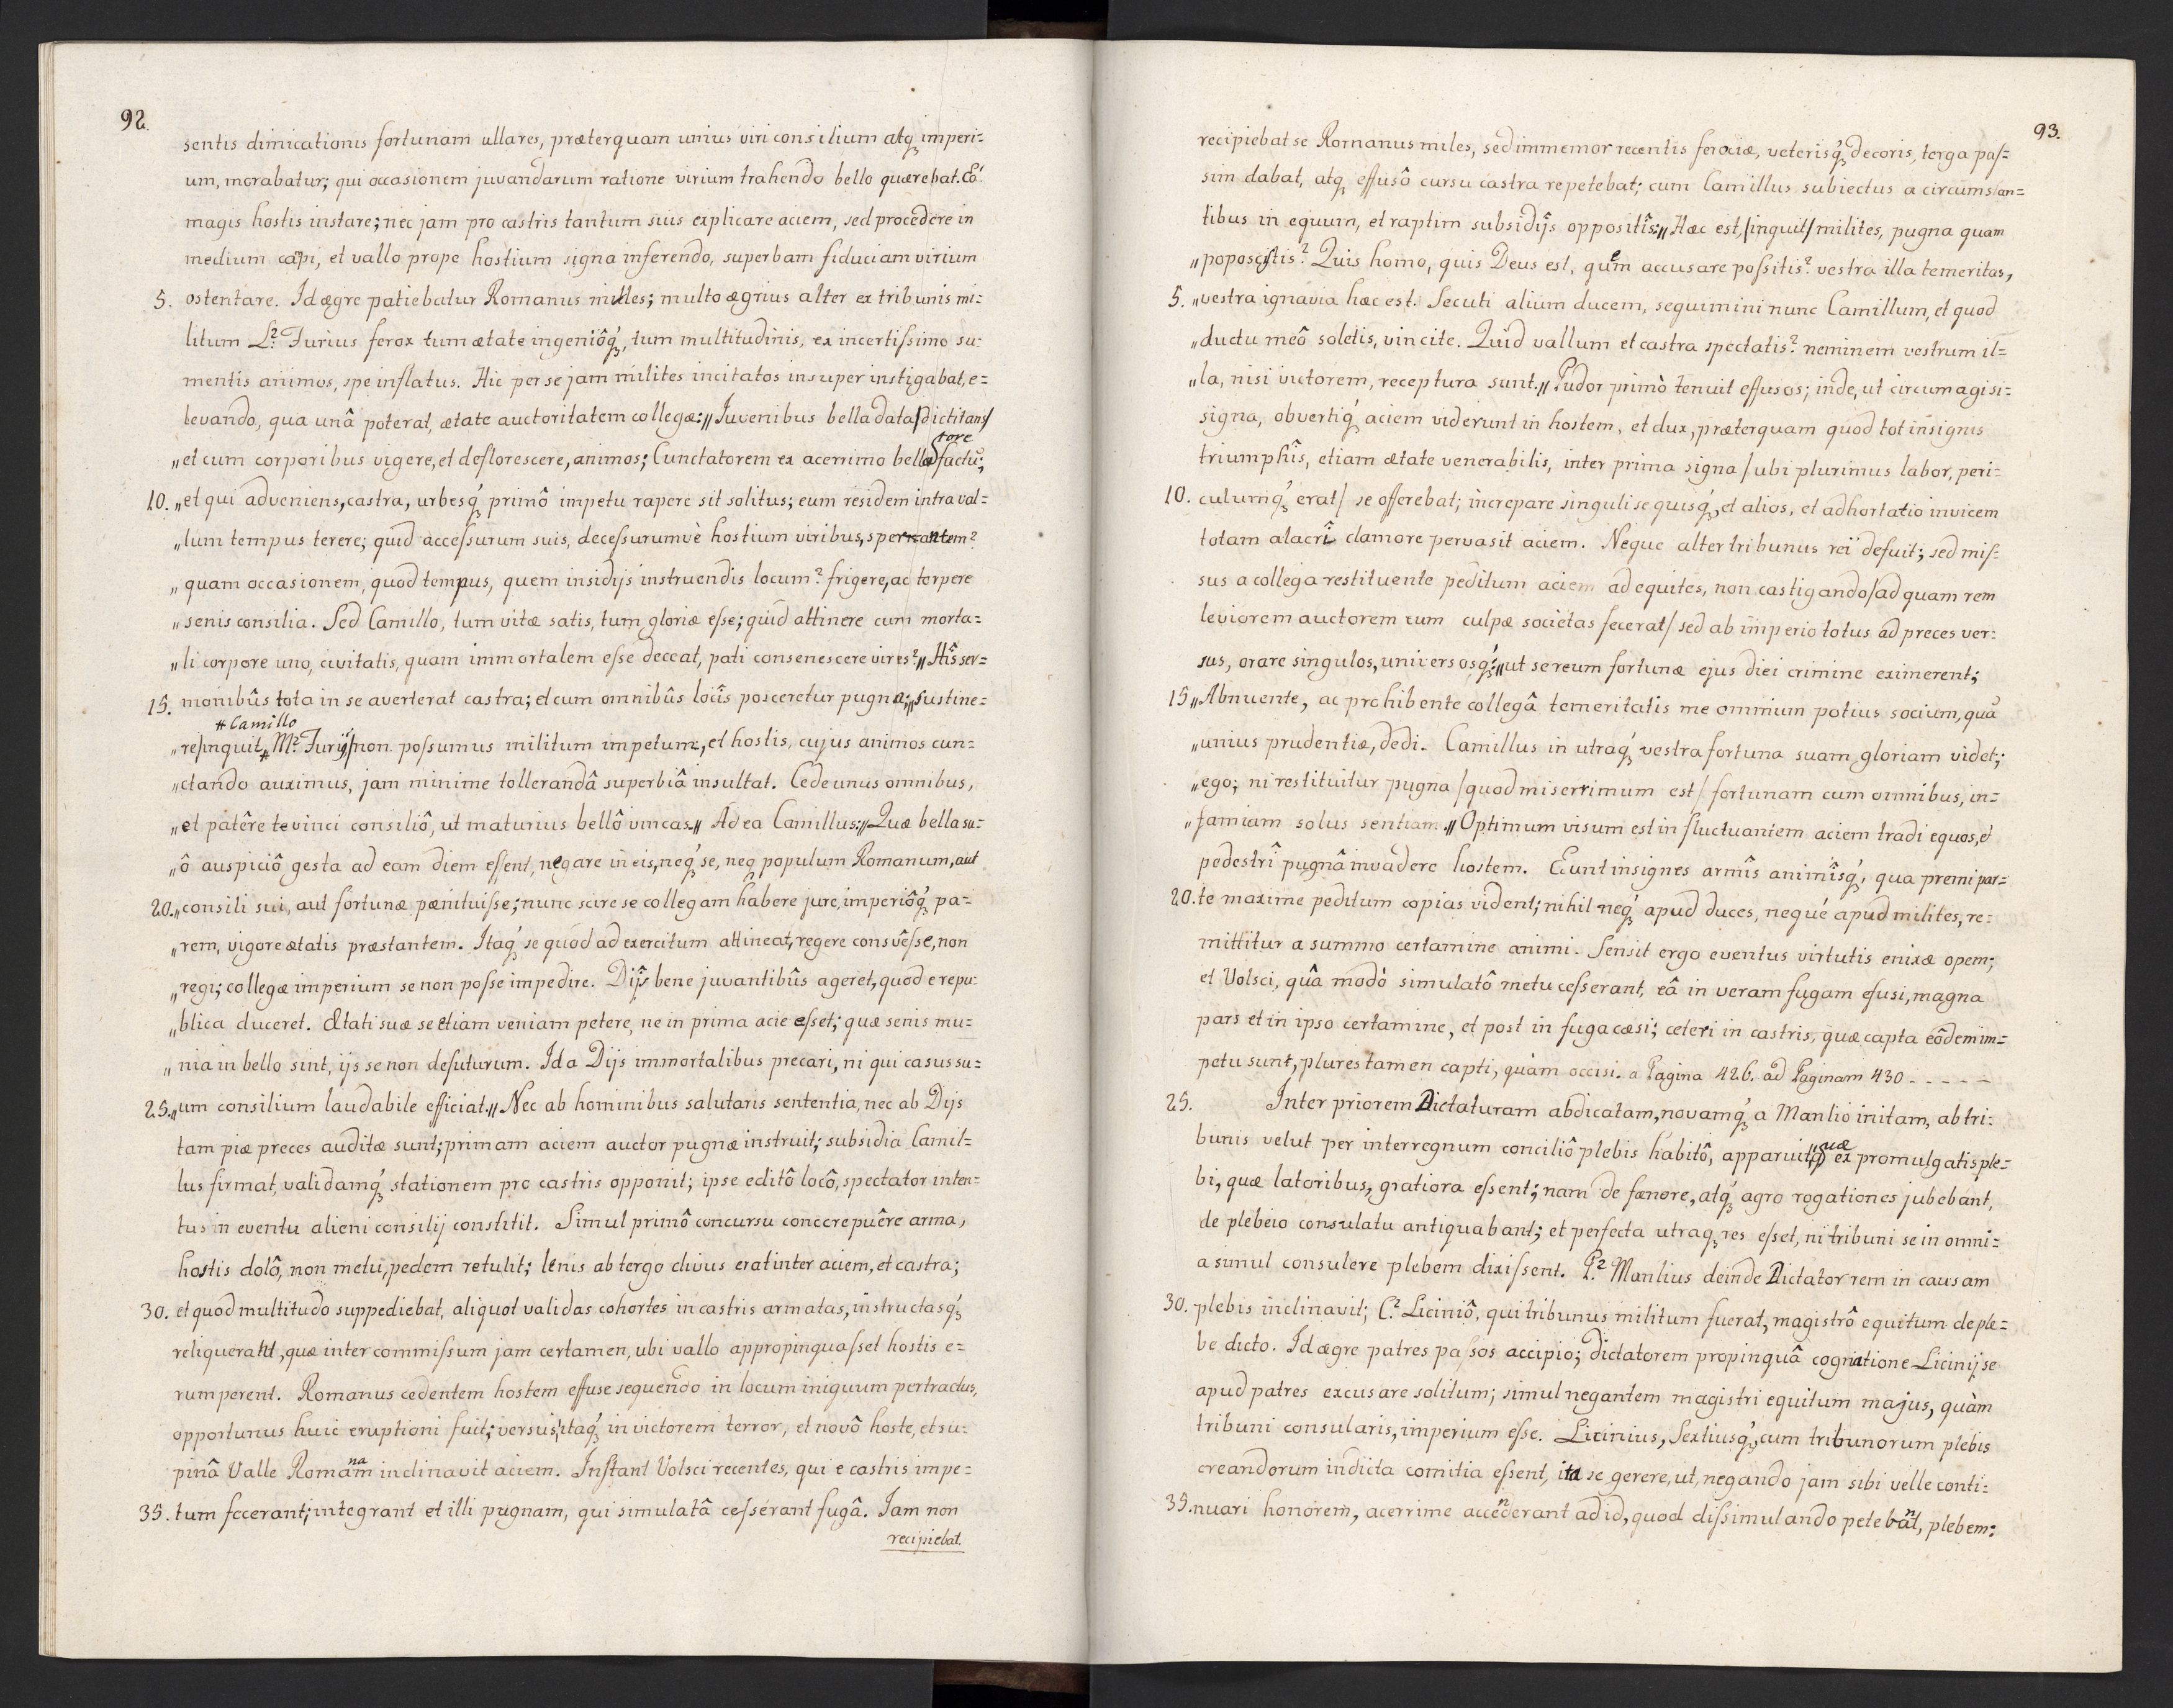 92.
sentis dimicationis fortunam ullares, præterquam unius viri consilium atq̃ imperi=
um, morabatur; qui occasionem juvandarum ratione virium trahendo bello quærebat. Eó
magis hostis instare; nec jam pro castris tantum suis explicare aciem, sed procedere in
medium capi, et vallo prope hostium signa inferendo, superbam fiduciam virium
5. ostentare. Id ægre patiebatur Romanus milles; multo ægrius alter ex tribunis mi=
litum L? Furius ferox tum ætate ingeniôq́, tum multitudinis, ex incertiſsimo su=
mentis animos, spe inflatus. Hic per se jam milites incitatos insuper instigabat, e=
levando, qua unâ poterat, ætate auctoritatem collegæ: „ Iuvenibus bella data/dictitans/
fore
„ et cum corporibus vigere, et deflorescere, animos; Cunctatorem ex acerrimo bella factũ;
10. „ et qui adveniens, castra, urbesq́ primô impetu rapere sit solitus; eum residem intra val=
„ lum tempus terere; quid acceſsurum suis, deceſsurumvè hostium viribus, sperantem?
„ quam occasionem, quod tempus, quem insidijs instruendis locum? frigere, ac torpere
„ senis consilia. Sed Camillo, tum vitæ satis, tum gloriæ eſse; quid attinere cum morta=
„ li corpore uno, civitatis, quam immortalem eſse deceat, pati consenescere vires? „ Hîs ser=
15. monibûs tota in se averterat castra; et cum omnibûs locîs posceretur pugna; „ sustine=
# Camillo
„ re/inquit # M? Furij/non poſsumus militum impetum, et hostis, cujus animos cun=
„ ctando auximus, jam minime tollerandâ superbiâ insultat. Cede unus omnibus,
„ et patêre te vinci consiliô, ut maturius bellô vincas „ Ad ea Camillus: „ Quæ bella su=
„ ô auspiciô gesta ad eam diem eſsent, negare in eis, neq́ se, neq̃ populum Romanum, aut
20. „ consili sui, aut fortunæ pænituiſse; nunc scire se collegam habere jure, imperiôq́ pa=
„ rem, vigore ætatis præstantem. Itaq́ se quod ad exercitum attineat, regere consvêſse, non
„ regi; collegæ imperium se non poſse impedire. Dijs bene juvantibûs ageret, quod e repu=
„ blica duceret. Ætati suæ se etiam veniam petere, ne in prima acie eſset; quæ senis mu=
„ nia in bello sint, ijs se non defuturum. Id a Dijs immortalibus precari, ni qui casus su=
25. „ um consilium laudabile efficiat. „ Nec ab hominibus salutaris sententia, nec ab Dijs
tam piæ preces auditæ sunt; primam aciem auctor pugnæ instruit; subsidia Camil=
lus firmat, validamq́ stationem pro castris opponit; ipse editô locô, spectator inten=
tus in eventu alieni consilij constitit. Simul primô concursu concrepuêre arma,
hostis dolô, non metu, pedem retulit; lenis ab tergo clivus erat inter aciem, et castra;
30. et quod multitudo suppediebat, aliquot validas cohortes in castris armatas, instructasq́
reliquerant, quæ inter commiſsum jam certamen, ubi vallo appropinquaſset hostis e=
rumperent. Romanus cedentem hostem effuse sequendo in locum iniquum pertractus,
opportunus huic eruptioni fuit; versus itaq́ in victorem terror, et novô hoste, et su=
na
pinâ Valle Romam inclinavit aciem. Inſtant Volsci recentes, qui e castris impe=
35. tum fecerant; integrant et illi pugnam, qui simulatâ ceſserant fugâ. Iam non
recipiebat.
93.
recipiebat se Romanus miles, sed immemor recentis ferociæ, veterisq́ decoris, terga paſ=
sim dabat, atq̃ effusô cursu castra repetebat; cum Camillus subiectus a circumstan=
tibus in equum, et raptim subsidijs oppositîs: „ Hæc est, /inquit/ milites, pugna quam
„ poposcistis? Quis homo, quis Deus est, quem accusare poſsitis? vestra illa temeritas,
5. „ vestra ignavia hæc est. Secuti alium ducem, sequimini nunc Camillum, et quod
„ ductu meô soletis, vincite. Quid vallum et castra spectatis? neminem vestrum il=
„ la, nisi victorem, receptura sunt. „ Pudor primò tenuit effusos; inde, ut circumagi si=
signa, obvertiq́ aciem viderunt in hostem, et dux, præterquam quod tot insignis
triumphîs, etiam ætate venerabilis, inter prima signa /ubi plurimus labor, peri=
10. culumq́ erat/ se offerebat; increpare singuli se quisq́, et alios, et adhortatio invicem
totam alacrî clamore pervasit aciem. Neque alter tribunus rei defuit; sed miſ=
sus a collega restituente peditum aciem ad equites, non castigando /ad quam rem
leviorem auctorem eum culpæ societas fecerat/ sed ab imperio totus ad preces ver=
sus, orare singulos, universosq́: „ ut se reum fortunæ ejus diei crimine eximerent;
15 „ Abnuente, ac prohibente collegâ temeritatis me omnium potius socium, quã
„ unius prudentiæ, dedi. Camillus in utraq́ vestra fortuna suam gloriam videt;
„ ego; ni restituitur pugna /quod miserrimum est/ fortunam cum omnibus, in=
„ famiam solus sentiam. „ Optimum visum est in fluctuantem aciem tradi equos, et
pedestrî pugnâ invadere hostem. Eunt insignes armîs animîsq́, qua premi par=
20. te maxime peditum copias vident; nihil neq́ apud duces, nequé apud milites, re=
mittitur a summo certamine animi. Sensit ergo eventus virtutis enixæ opem;
et Volsci, quâ modò simulatô metu ceſserant, eâ in veram fugam efusi, magna
pars et in ipso certamine, et post in fuga cæsi; ceteri in castris, quæ capta eôdem im=
petu sunt, plures tamen capti, quàm occisi. a Pagina 426. ad Paginam 430 - - - - -
25. Inter priorem Dictaturam abdicatam, novamq́ a Manlio initam, ab tri=
bunis velut per interregnum conciliô plebis habitô, apparuit quæ ex promulgatis ple=
bi, quæ latoribus, gratiora eſsent; nam de fænore, atq́ agro rogationes jubebant,
de plebeio consulatu antiquabant; et perfecta utraq̃ res eſset, ni tribuni se in omni=
a simul consulere plebem dixiſsent. P? Manlius deinde Dictator rem in causam
30. plebis inclinavit; C? Liciniô, qui tribunus militum fuerat, magistrô equitum de ple=
be dicto. Id ægre patres paſsos accipio; dictatorem propinquâ cognatione Licinij se
apud patres excusare solitum; simul negantem magistri equitum majus, quàm
tribuni consularis, imperium eſse. Licinius, Sextiusq́, cum tribunorum plebis
creandorum indicta comitia eſsent, ita se gerere, ut, negando jam sibi velle conti=
35. nuari honorem, acerrime accenderant ad id, quod diſsimulando petebant, plebem: